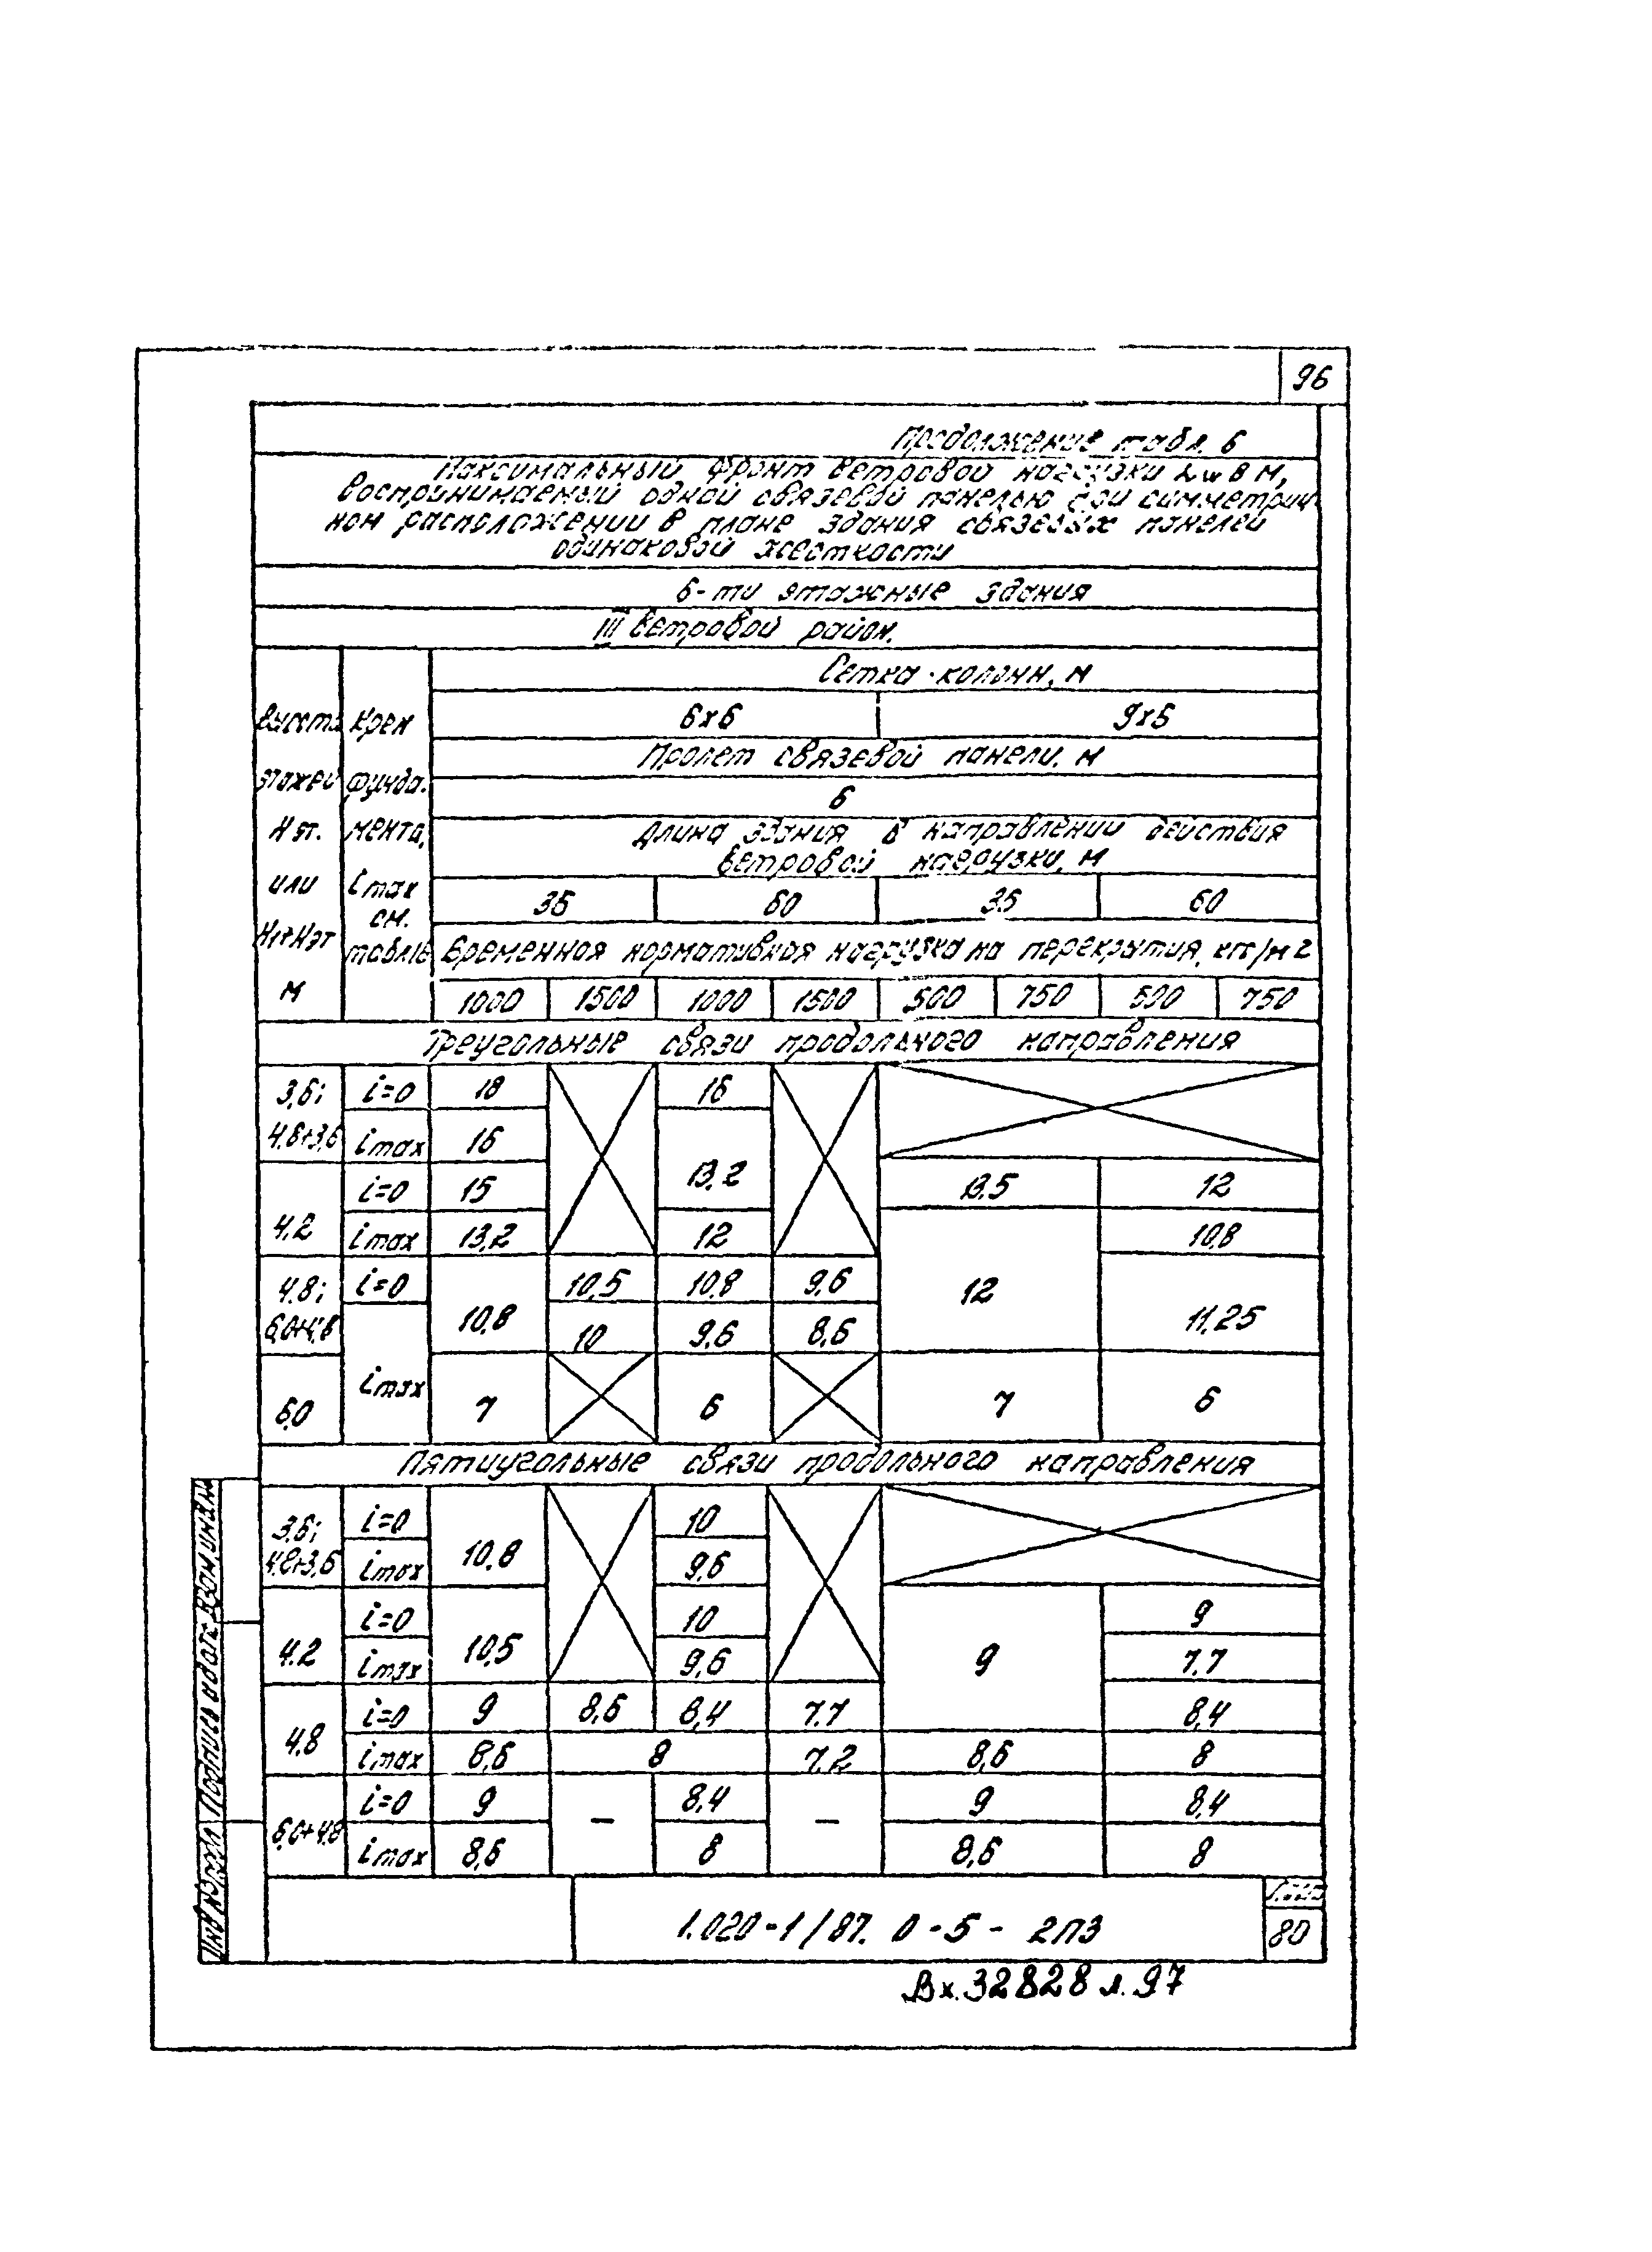 96
Продолжение табл. 6
Максимальный фронт ветровой нагрузки Lw в м,
воспринимаемый одной связевой панелью при симметрич
ном расположении в плане здания связевых панелей
одинаковой жесткости
6-ти этажные здания
III ветровой район.
Высота этажей Hэт. или H1+Hэт м
Крен фунда. мента, imax см. табл.16
Сетка колонн, м
6х6 9х6
Пролет связевой панели, м
6
Длина здания в направлении действия
ветровой нагрузки, м
36 60 36 60
Временная нормативная нагрузка на перекрытия, кгс/м2
1000 1500 1000 1500 500 750 500 750
Треугольные связи продольного направления
3,6; i=0 18 16
4.8+3,6 imax 16 13,2
i=0 15 13,5 12
4.2 imax 13,2 12 10,8
4.8; i=0 10,5 10,8 9,6 12
6,0+4,8 10,8 10 9,6 8,6 11,25
6,0 imax 7 6 7 6
Пятиугольные связи продольного направления
3,6; i=0 10
4.8+3,6 imax 10,8 9,6
i=0 10 9
4.2 imax 10,5 9,6 9 7,7
i=0 9 8,6 8,4 7,7 8,4
4.8 imax 8,6 8 7,2 8,6 8
i=0 9 — 8,4 — 9 8,4
6,0+4,8 imax 8,6 8 8,6 8
Инв.№подл. Подпись и дата Взам.инв.№
1.020-1/87. 0-5-2ПЗ
Лист
80
Вх.32828 л.97